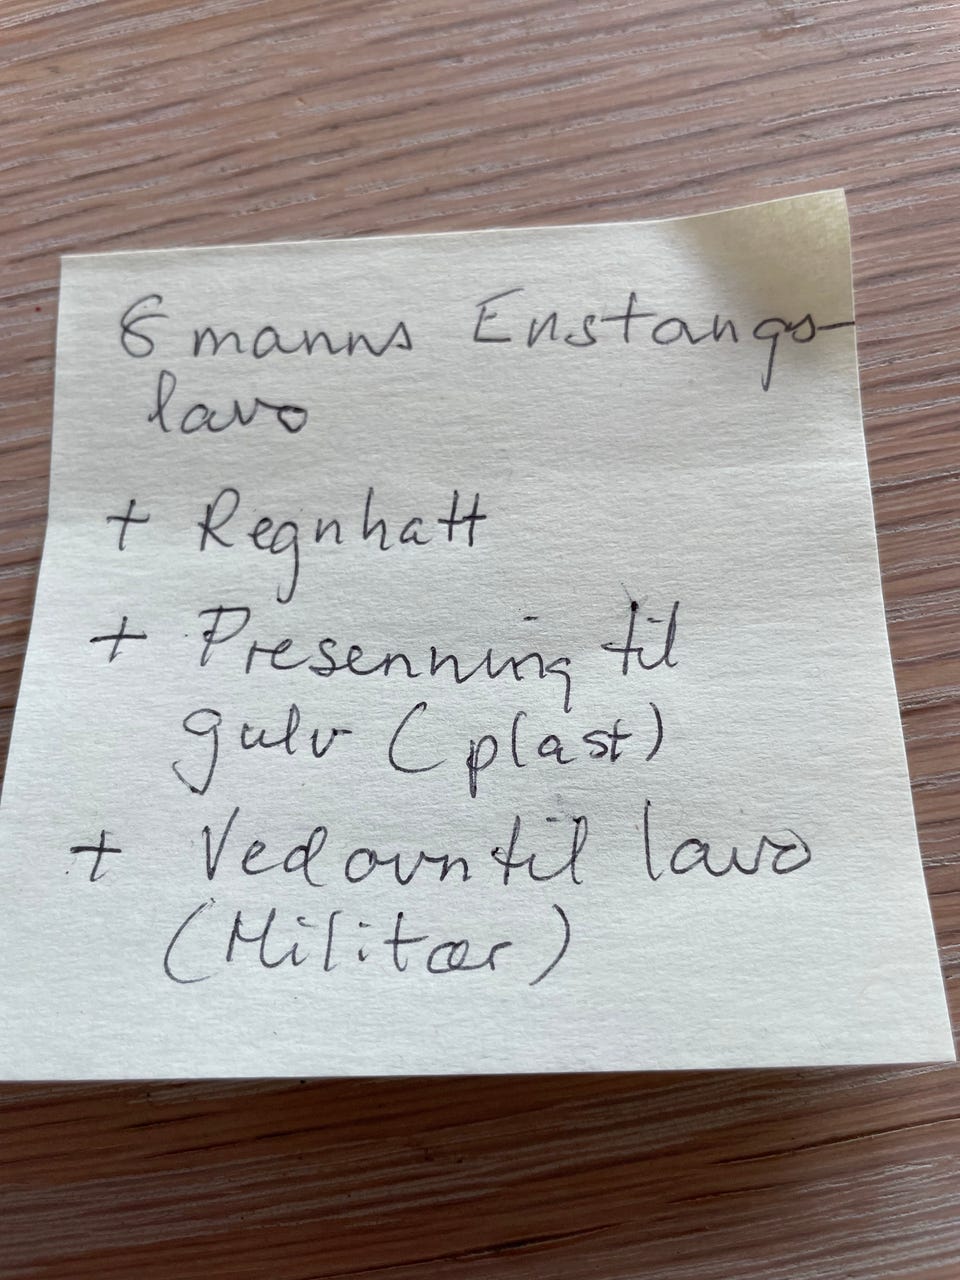 8 manns Enstangs-
lavo
+ Regnhatt
+ Presenning til
gulv (plast)
+ Vedovn til lavo
(Militær)